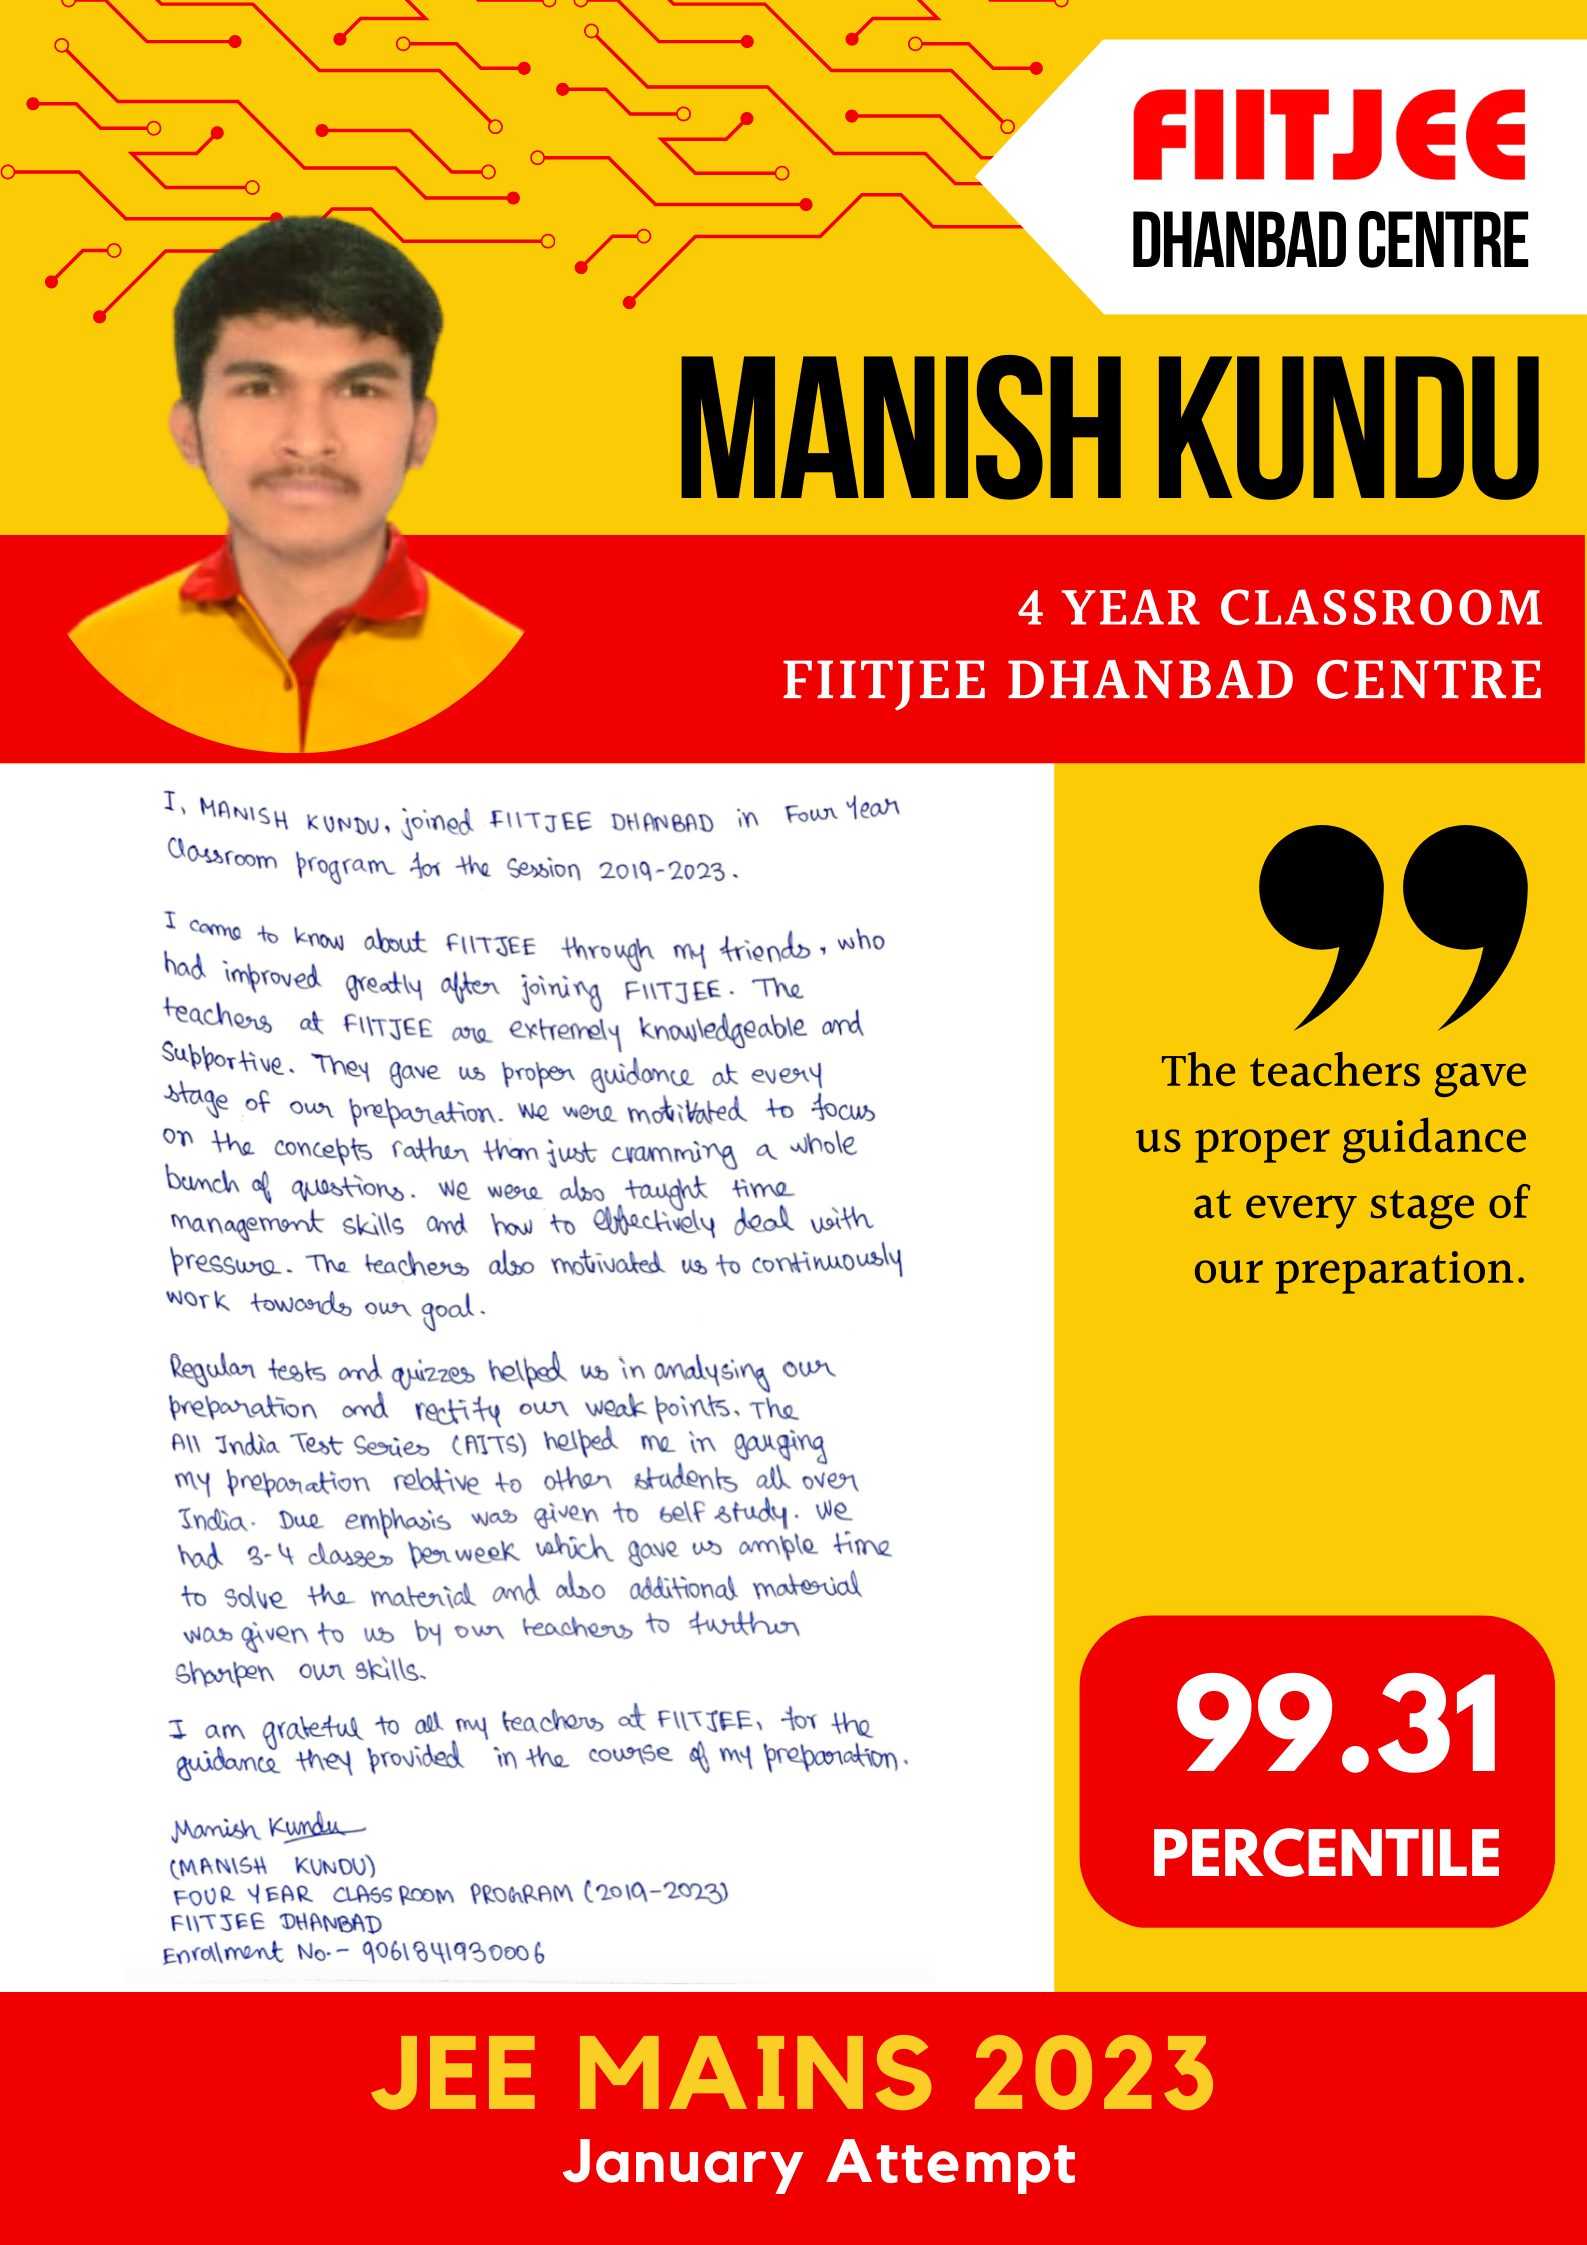 FIITJEE
DHANBAD CENTRE
MANISH KUNDU
4 YEAR CLASSROOM
FIITJEE DHANBAD CENTRE
I, MANISH KUNDU, joined FIITJEE DHANBAD in Four Year
Classroom program for the Session 2019-2023.
I came to know about FIITJEE through my friends, who
had improved greatly after joining FIITJEE. The
teachers at FIITJEE are extremely knowledgeable and
Supportive. They gave us proper guidance at every
stage of our preparation. We were motivated to focus
on the concepts rather than just cramming a whole
bunch of questions. We were also taught time
management skills and how to effectively deal with
pressure. The teachers also motivated us to continuously
work towards our goal.
Regular tests and quizzes helped us in analysing our
preparation and rectify our weak points. The
All India Test Series (AITS) helped me in gauging
my preparation relative to other students all over
India. Due emphasis was given to self study. We
had 3-4 classes per week which gave us ample time
to solve the material and also additional material
was given to us by our teachers to further
Sharpen our skills.
I am grateful to all my teachers at FIITJEE, for the
guidance they provided in the course of my preparation.
Manish Kundu
(MANISH KUNDU)
FOUR YEAR CLASSROOM PROGRAM (2019-2023)
FIITJEE DHANBAD
Enrollment No.- 9061841930006
”
The teachers gave
us proper guidance
at every stage of
our preparation.
99.31
PERCENTILE
JEE MAINS 2023
January Attempt